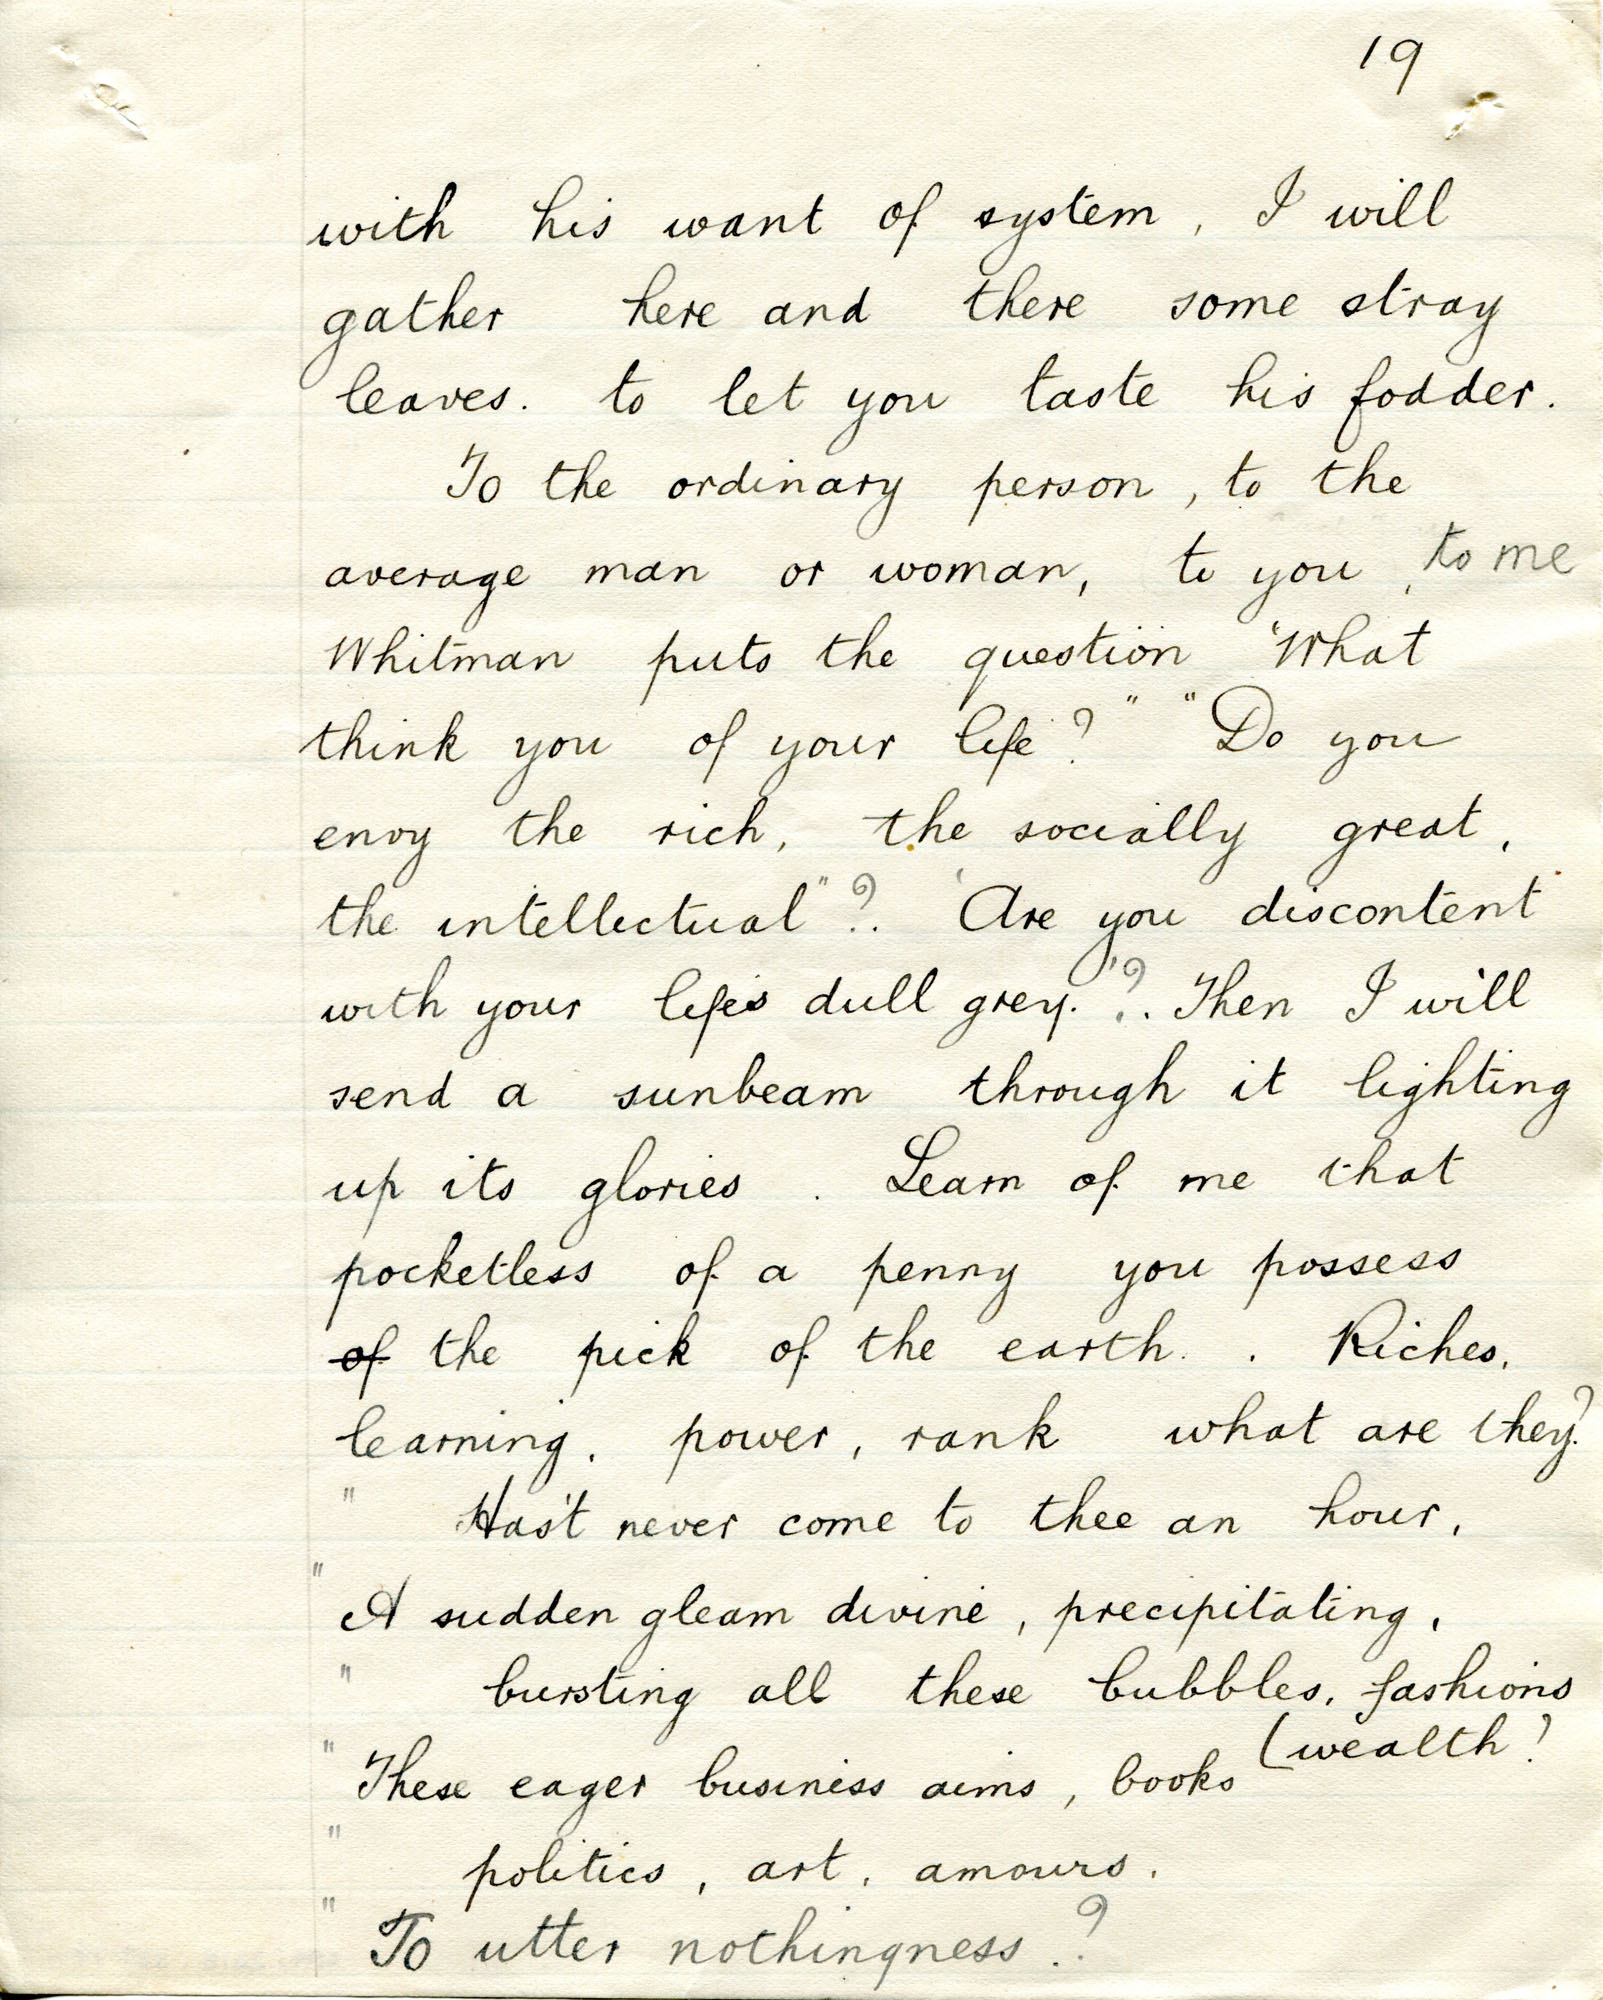 19
with his want of system, I will
gather here and there some stray
leaves. to let you taste his fodder.
To the ordinary person, to the
average man or woman, to you, to me
Whitman puts the question 'What
think you of your life?" "Do you
envy the rich, the socially great,
the intellectual"?. 'Are you discontent
with your life's dull grey.'?. Then I will
send a sunbeam through it lighting
up its glories. Learn of me that
pocketless of a penny you possess
of the pick of the earth. . Riches,
learning, power, rank what are they?
" Has't never come to thee an hour,
" A sudden gleam divine, precipitating,
" bursting all these bubbles, fashions
(wealth?
" These eager business aims, books
" politics, art, amours.
" To utter nothingness.?